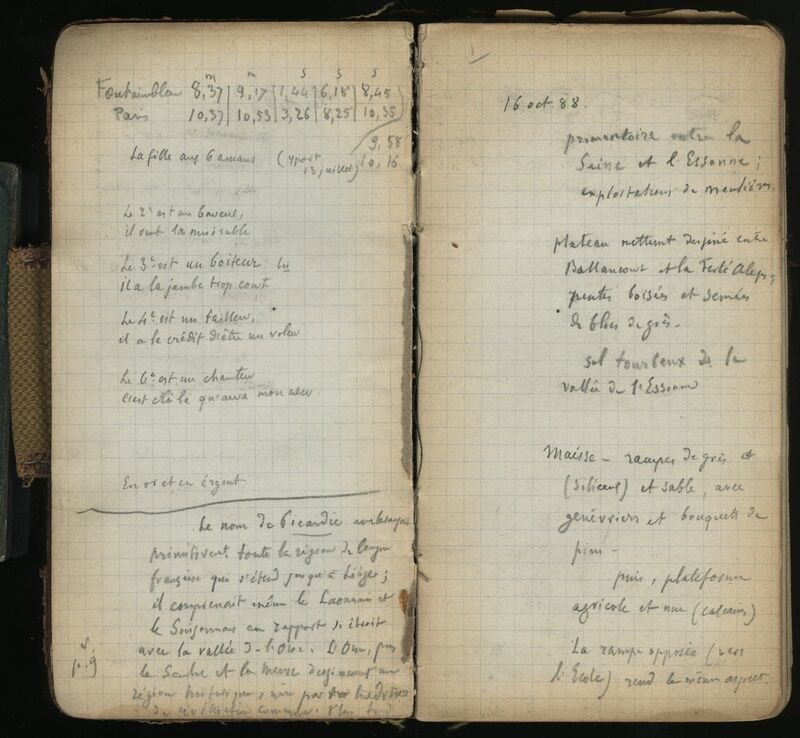 m m s s s
Fontainebleau 8,37 | 9,17 | 1,44 | 6,18 | 8,45
Paris 10,37 | 10,53 | 3,26 | 8,25 | 10,35
9,58
La fille aux 6 amans (Yport 10,16
13 juillet)
Le 2e est un baveux,
il ont la misérable
Le 3e est un boiteux bis
il a la jambe trop court
Le 4e est un tailleur,
il a le crédit d'être un voleu
Le 6e est un chanteu
c'est ch'li là qu'aura mon cœu
En or et en érgent
Le nom de Picardie embrassa
primitivent toute la région de langue
française qui s'étend jusqu'à Liège ;
il comprenait même le Laonnais et
le Soissonnais en rapport si étroit
avec la vallée de l'Oise. L'Oise, puis
v.
p. 9
la Sambre et la Meuse dessinent une
région
de civilisation commune. Plus tard
1
16 oct 88.
promontoire entre la
Seine et l'Essonne ;
exploitations de meulières.
plateau nettement dessiné entre
Ballancourt et la Ferté Aleps ;
pentes boisées et semées
de blocs de grès.
sol tourbeux de la
vallée de l'Essonne
Maisse – rampes de grès et
(siliceux) et sable, avec
genévriers et bouquets de
pins –
puis, plateforme
agricole et nue (calcaires)
La rampe opposée (vers
l'Ecole) rend le même aspect.